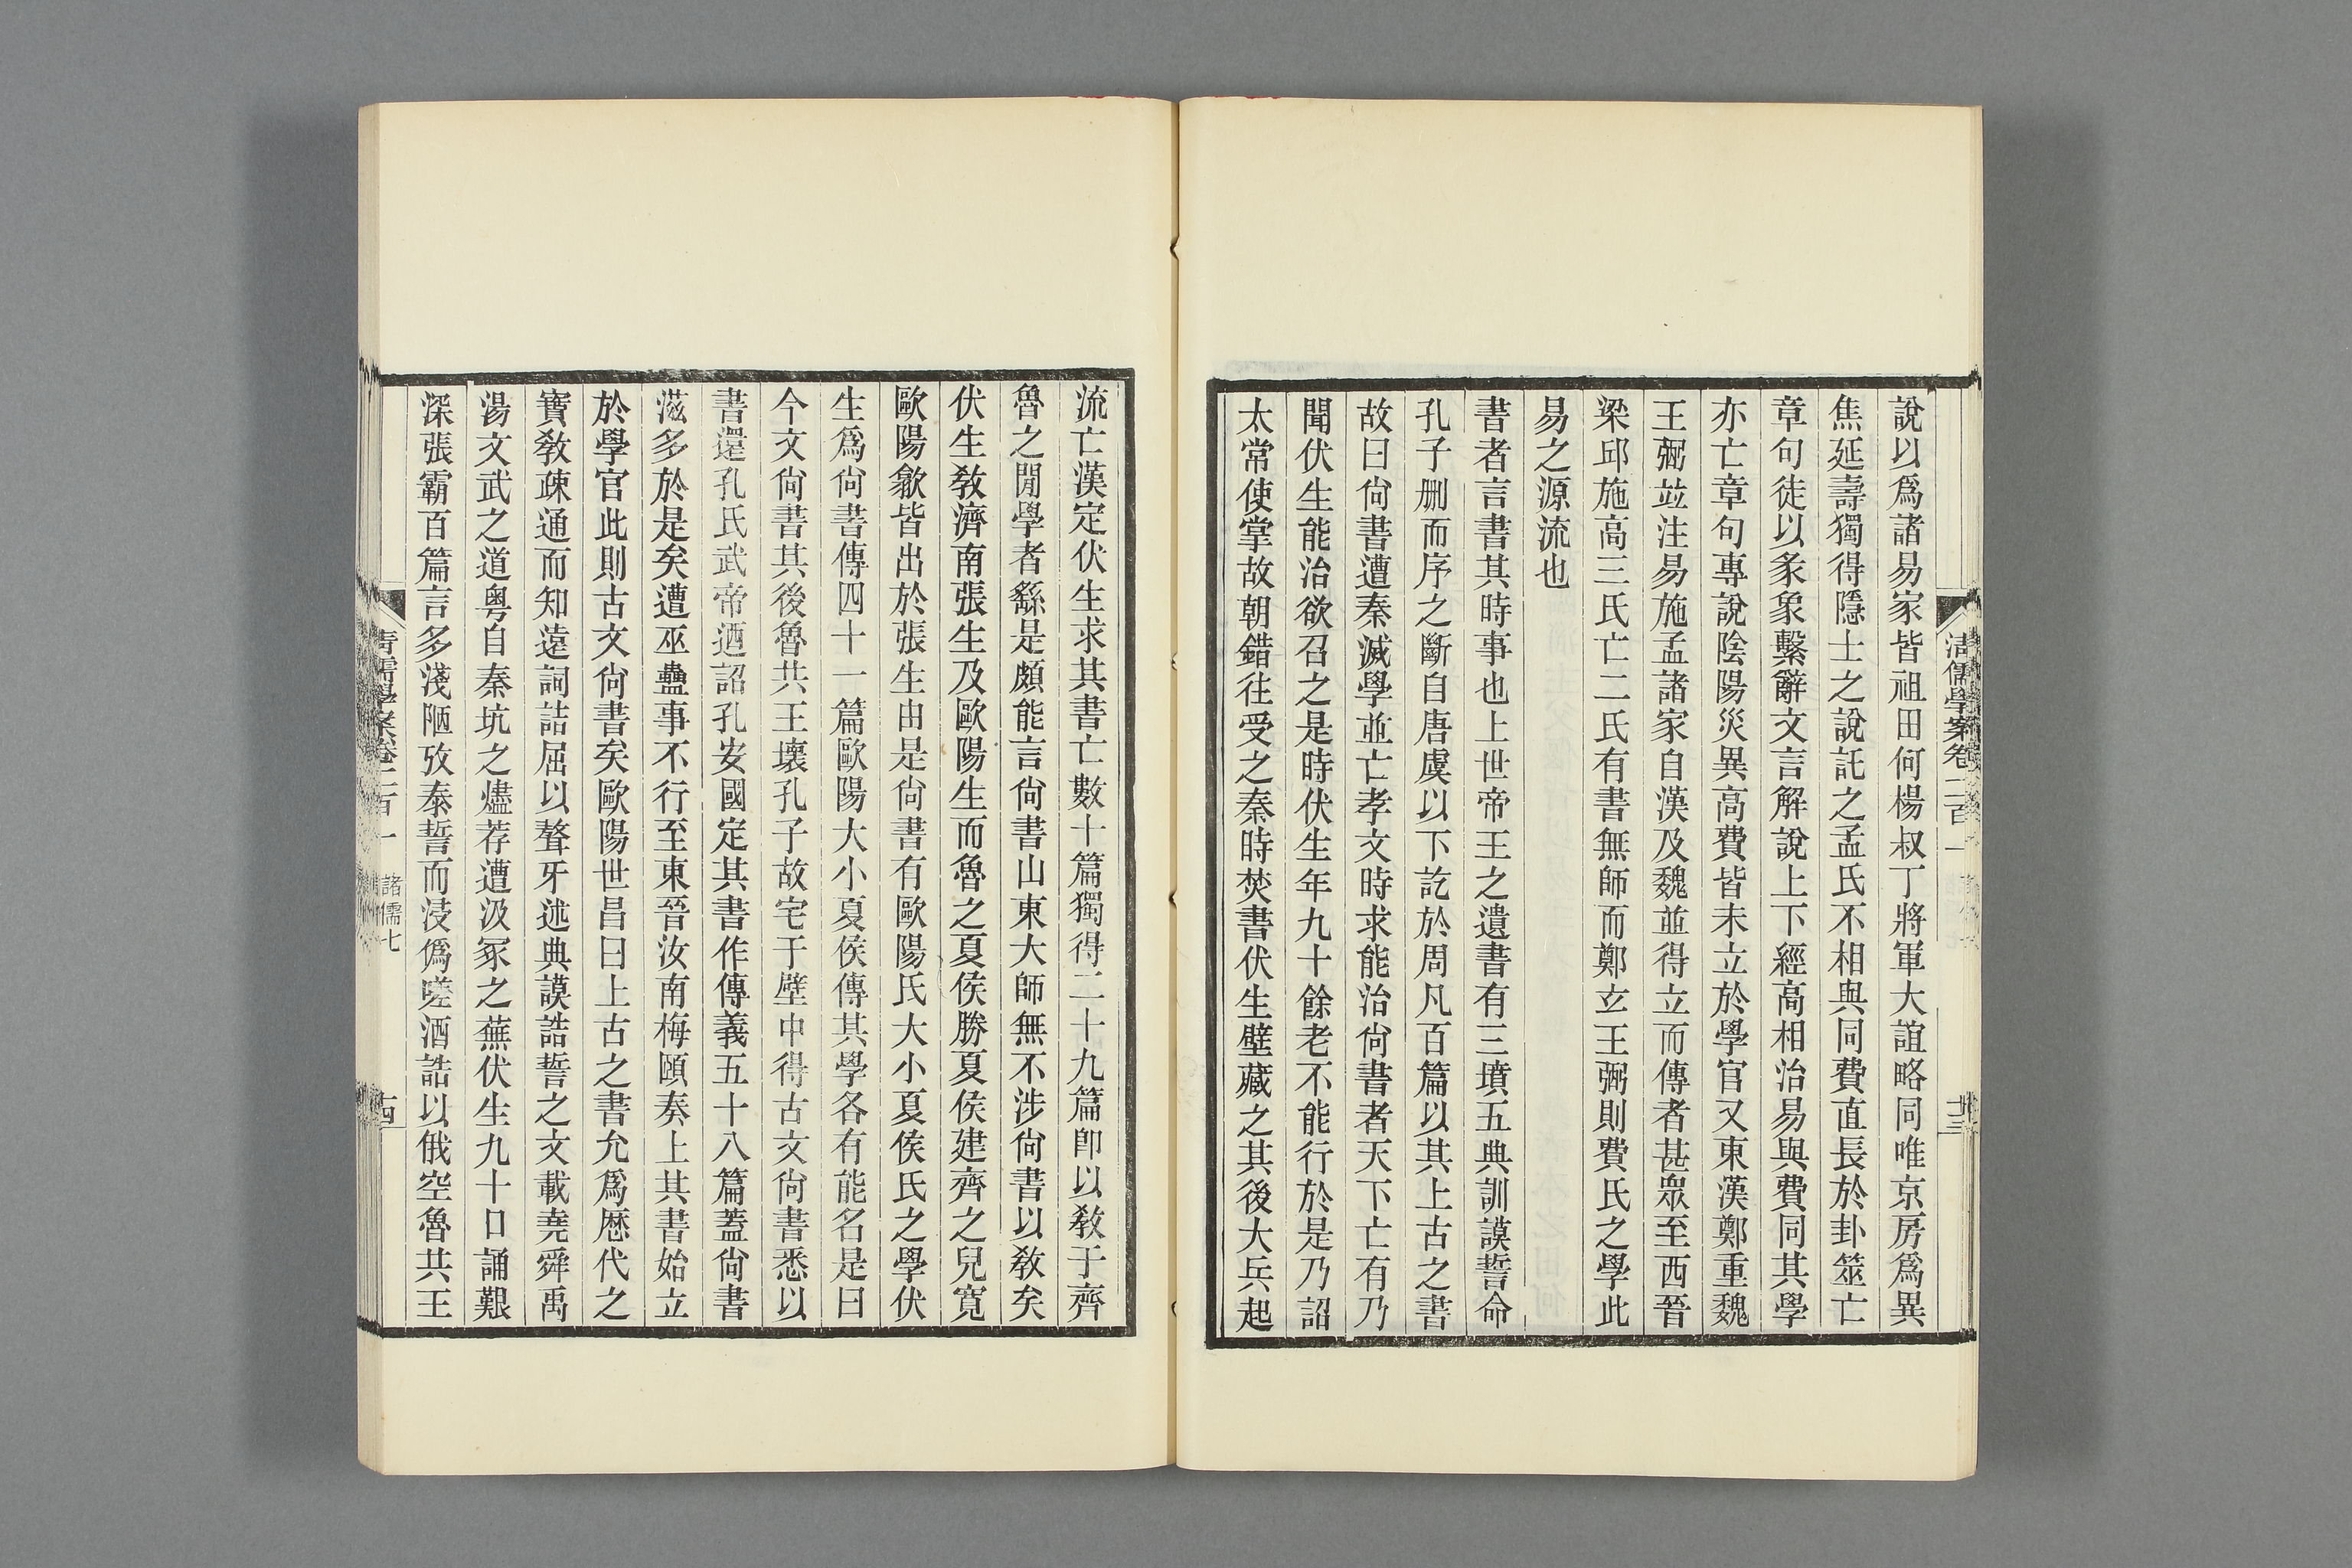 說以爲諸易家皆祖田何楊叔丁將軍大誼略同唯京房爲異
焦延壽獨得隱士之說託之孟氏不相與同費直長於卦筮亡
章句徒以彖象繫辭文言解說上下經高相治易與費同其學
亦亡章句專說陰陽災異高費皆未立於學官又東漢鄭重魏
王弼竝注易施孟諸家自漢及魏並得立而傳者甚眾至西晉
梁邱施高三氏亡二氏有書無師而鄭玄王弼則費氏之學此
易之源流也
書者言書其時事也上世帝王之遺書有三墳五典訓謨誓命
孔子刪而序之斷自唐虞以下訖於周凡百篇以其上古之書
故曰尙書遭秦滅學並亡孝文時求能治尙書者天下亡有乃
聞伏生能治欲召之是時伏生年九十餘老不能行於是乃詔
太常使掌故朝錯往受之秦時焚書伏生壁藏之其後大兵起
流亡漢定伏生求其書亡數十篇獨得二十九篇卽以敎于齊
魯之閒學者繇是頗能言尙書山東大師無不涉尙書以敎矣
伏生敎濟南張生及歐陽生而魯之夏侯勝夏侯建齊之兒寬
歐陽歙皆出於張生由是尙書有歐陽氏大小夏侯氏之學伏
生爲尙書傳四十一篇歐陽大小夏侯傳其學各有能名是曰
今文尙書其後魯共王壞孔子故宅于壁中得古文尙書悉以
書還孔氏武帝迺詔孔安國定其書作傳義五十八篇蓋尙書
滋多於是矣遭巫蠱事不行至東晉汝南梅頤奏上其書始立
於學官此則古文尙書矣歐陽世昌曰上古之書允爲歷代之
寶敎疎通而知遠詞詰屈以聱牙述典謨誥誓之文載堯舜禹
湯文武之道粤自秦坑之燼荐遭汲冢之蕪伏生九十口誦艱
深張霸百篇言多淺陋攷泰誓而浸僞嗟酒誥以俄空魯共王
清儒學案卷二百一
清儒學案卷二百一 諸儒七